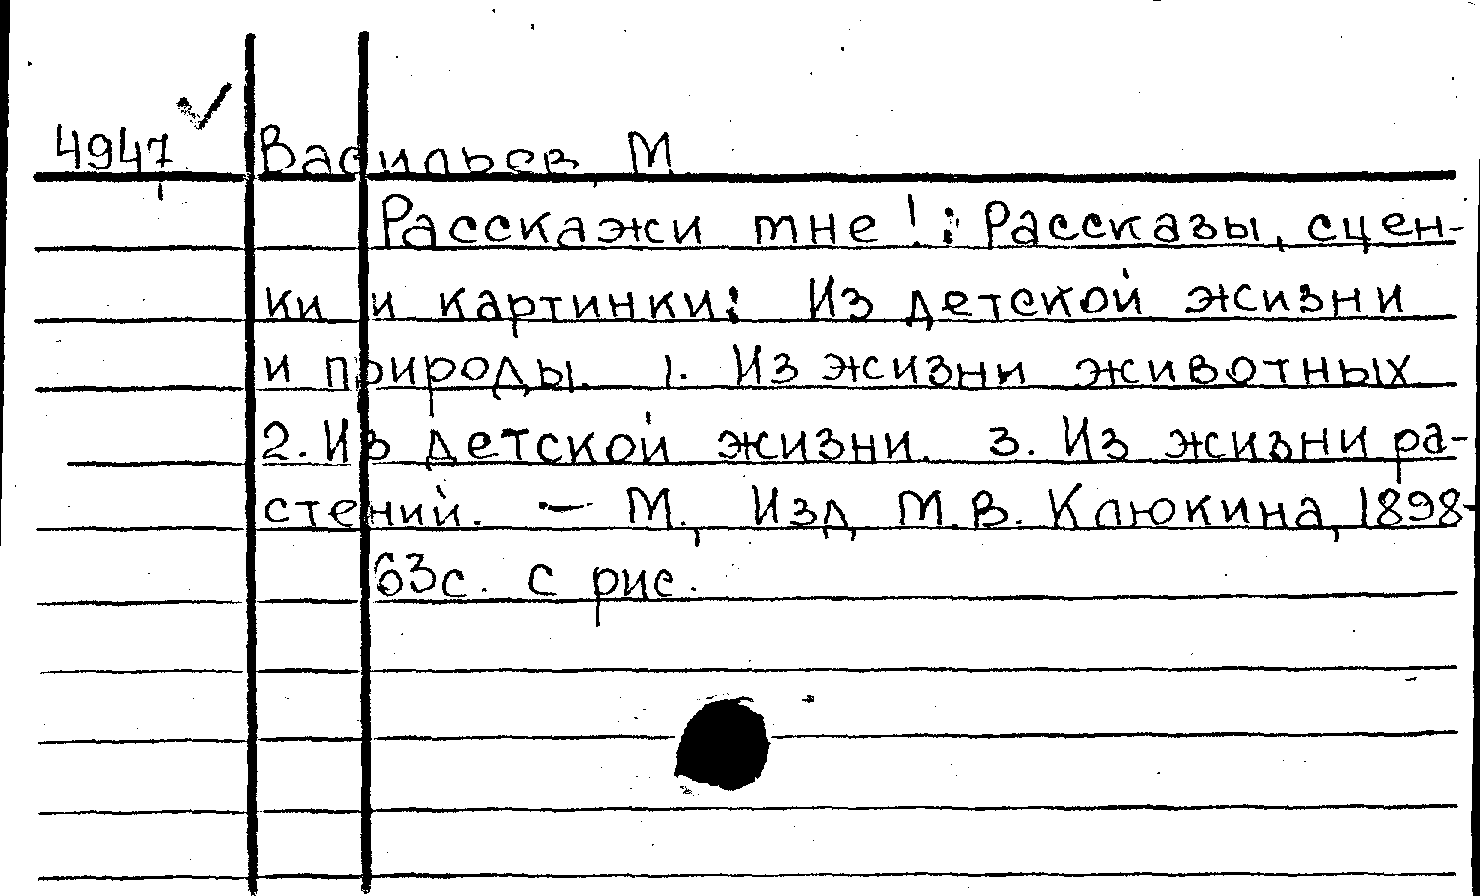 4947 Васильев, М.
Расскажи мне!: Рассказы, сцен-
ки и картинки: Из детской жизни
и природы. 1. Из жизни животных
2. Из детской жизни. 3. Из жизни ра-
стений. — М., Изд. М.В. Клюкина, 1898-
63с. с рис.